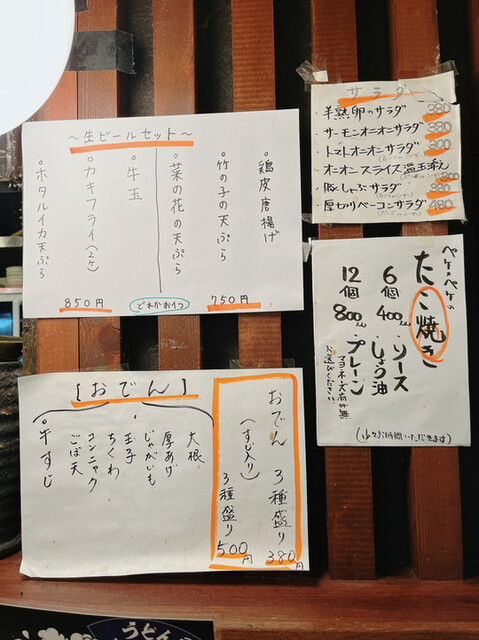 ~生ビールセット~
・鶏皮唐揚げ
・竹の子の天ぷら
・菜の花の天ぷら
・牛玉
・カキフライ(2ケ)
・ホタルイカ天ぷら
750円
どれか1つ
850円
サラダ
・半熟卵のサラダ 380
・サーモンオニオンサラダ 380
・トマトオニオンサラダ 300
・オニオンスライス温玉添え 300
・豚しゃぶサラダ 380
・厚切りベーコンサラダ 480
ペケペケの
たこ焼き
6個 400円
12個 800円
・ソース
・しょう油
・プレーン
マヨネーズ有・無
お選びください
(少々お時間いただきます)
【おでん】
おでん 3種盛り 380円
(すじ入り) 3種盛り 500円
大根
厚あげ
じゃがいも
玉子
ちくわ
コンニャク
ごぼ天
・牛すじ
うどん